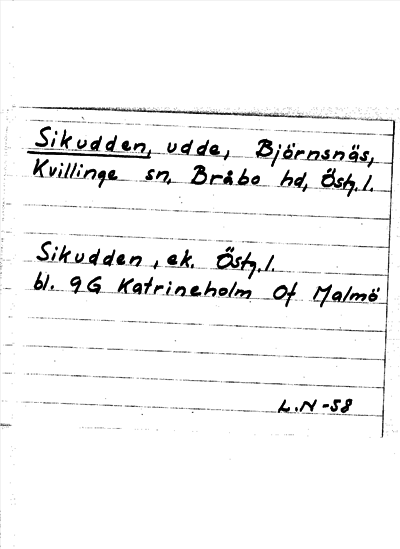 Sikudden, udde, Björnsnäs,
Kvillinge sn, Bråbo hd, Östg. l.
Sikudden, ek. Östg. l.
bl. 9G Katrineholm Of Malmö
L.N -58